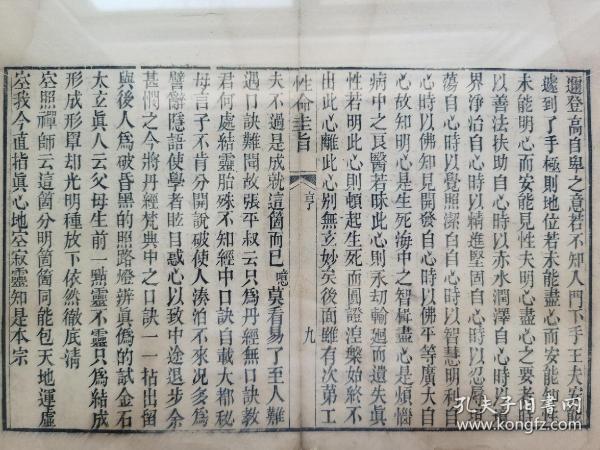 邇登高自卑之意若不知入門下手工夫安能
遽到了手極則地位若未能盡心而安能知性
未能明心而安能見性夫明心盡心之要者時
以善法扶助自心時以赤水潤澤自心時以境
界淨治自心時以精進堅固自心時以忍辱坦
蕩自心時以覺照潔白自心時以智慧明利自
心時以佛知見開發自心時以佛平等廣大自
心故知明心是生死海中之智楫盡心是煩惱
病中之良醫若昧此心則永刧輪廻而遺失眞
性若明此心則頓起生死而圓證湼槃始終不
出此心離此心别無玄妙矣後面雖有次第工
性命圭旨 亨 九
夫不過是成就這箇而巳噫莫看易了至人難
遇口訣難聞故張平叔云只爲丹經無口訣教
君何處結靈胎殊不知經中口訣自載大都秘
母言子不肯分開說破使人湊泊不來况多爲
譬辭隱語使學者眩目惑心以致中途退步余
甚憫之今將丹經梵典中之口訣一一拈出留
與後人爲破昏黑的照路燈辨眞僞的試金石
太玄眞人云父母生前一點靈不靈只爲結成
形成形罩却光明種放下依然徹底清
空照禪師云這箇分明箇箇同能包天地運虛
空我今直指眞心地空寂靈知是本宗
孔夫子旧書网